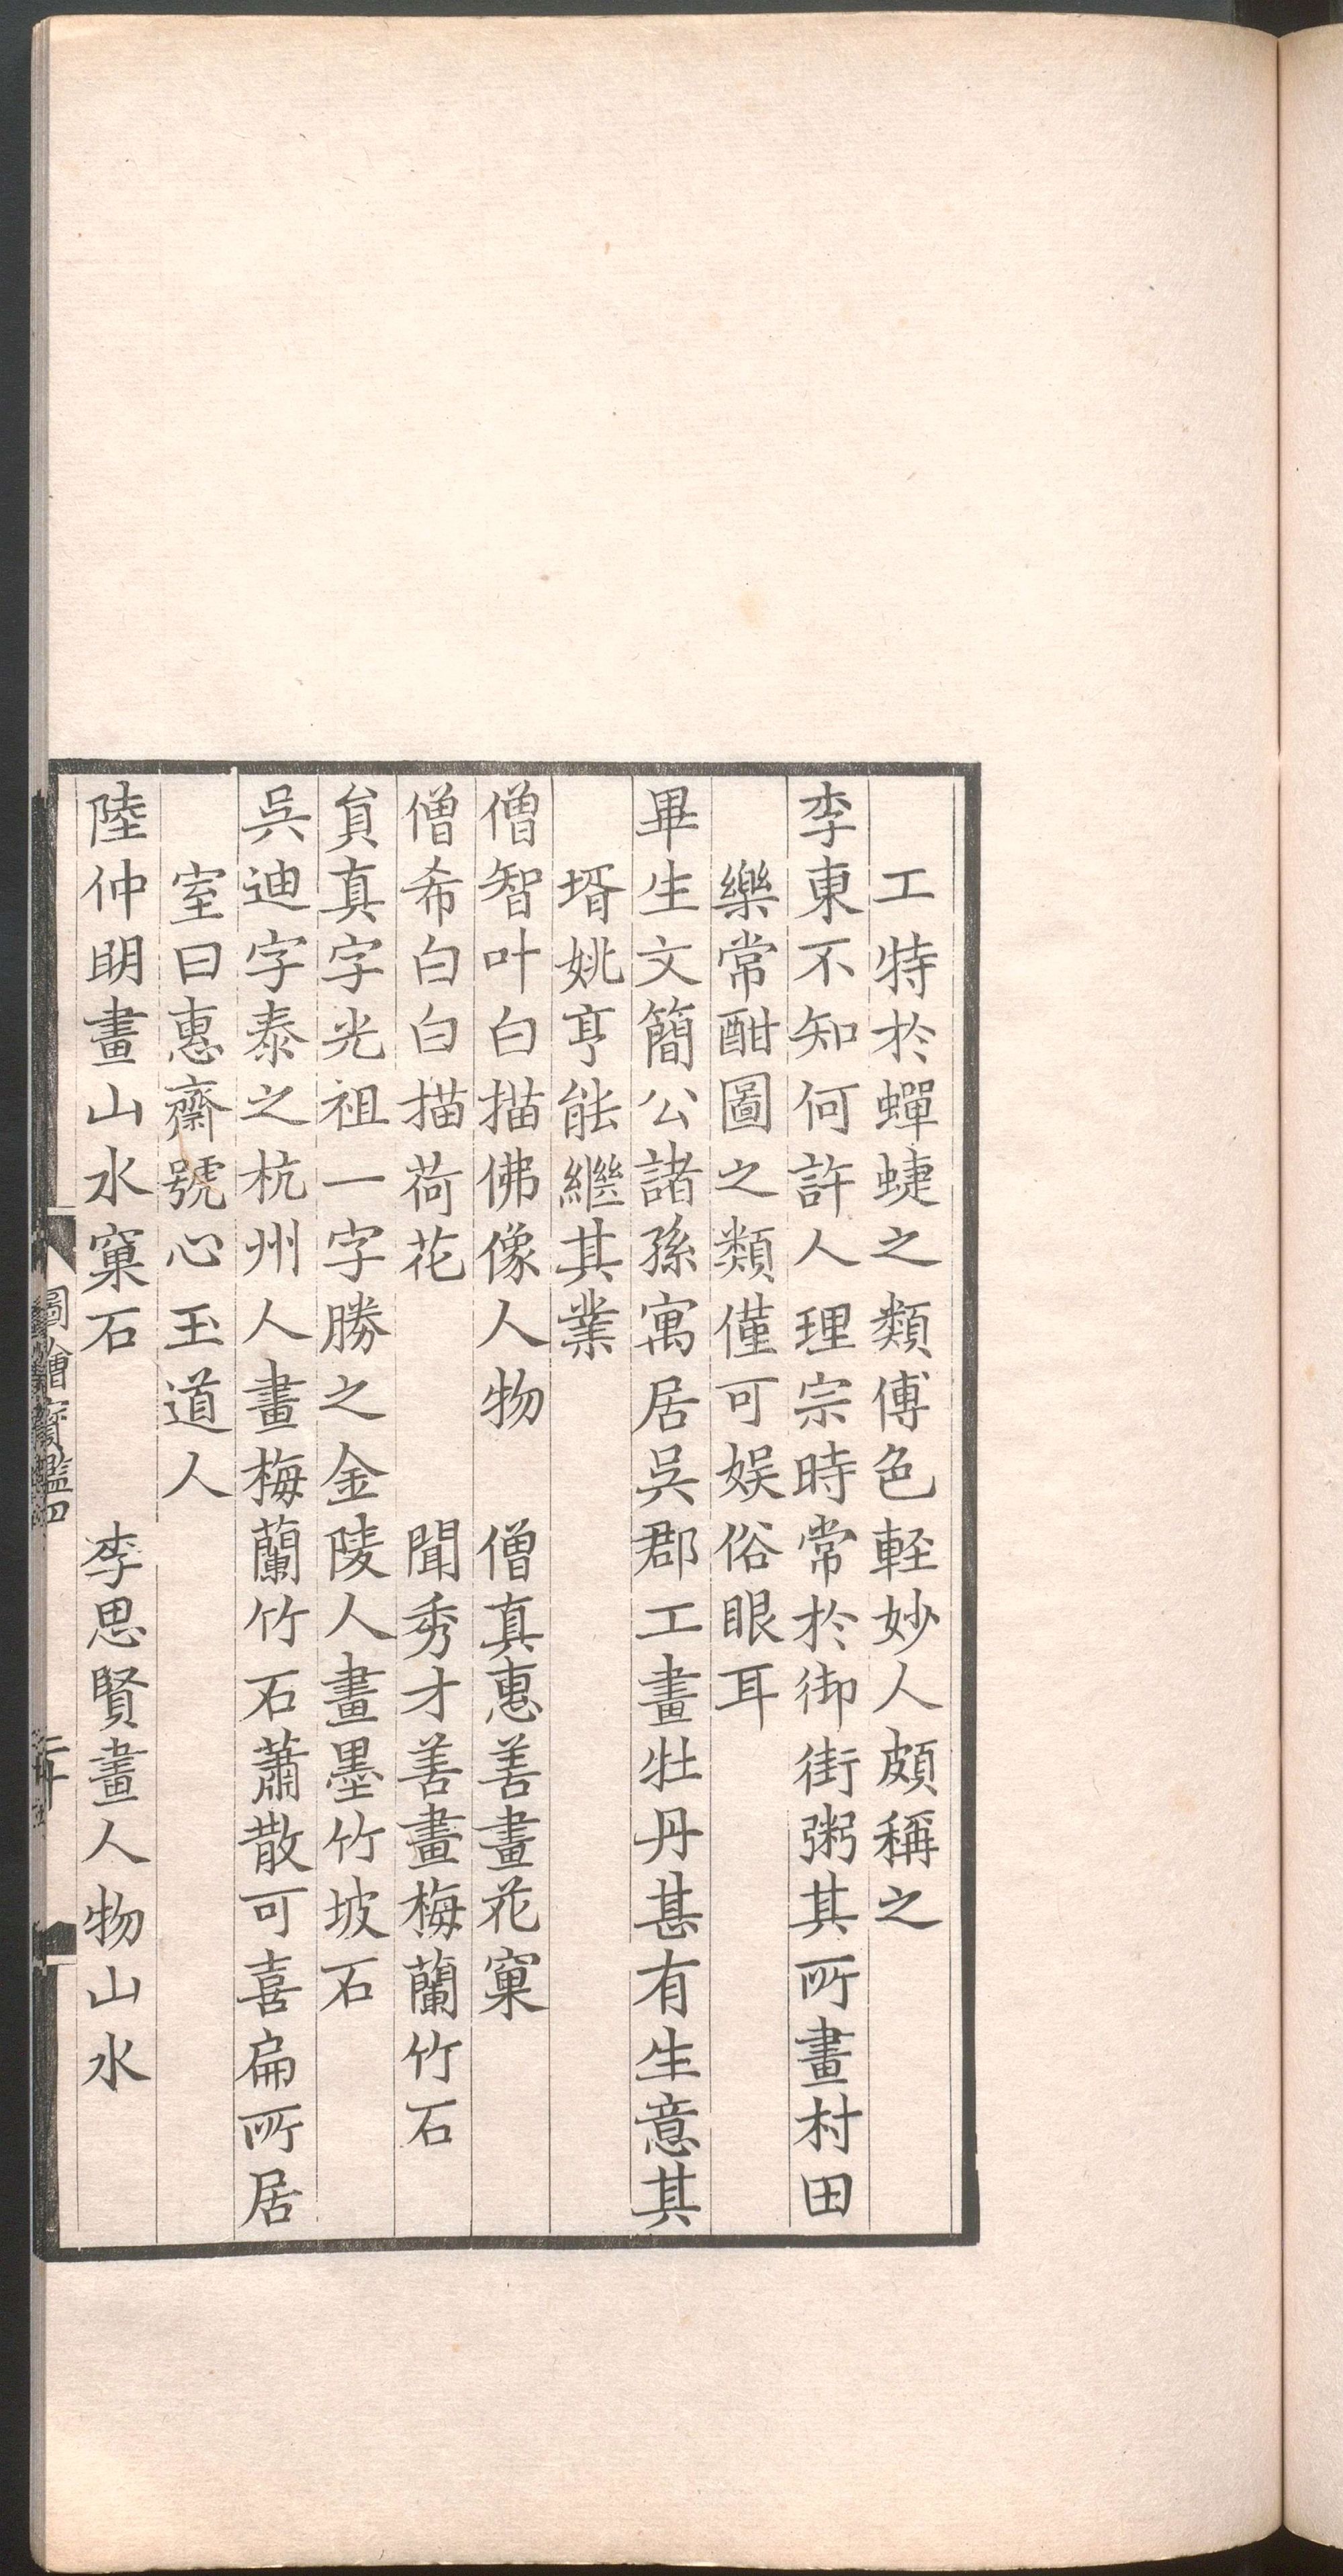 工特於蟬蜨之類傅色輕妙人頗稱之
李東不知何許人理宗時常於御街粥其所畫村田
樂常酣圖之類僅可娱俗眼耳
畢生文簡公諸孫寓居吳郡工畫牡丹甚有生意其
壻姚亨能繼其業
僧智叶白描佛像人物　僧真惠善畫花窠
僧希白白描荷花　聞秀才善畫梅蘭竹石
貟真字光祖一字勝之金陵人畫墨竹坡石
吳迪字泰之杭州人畫梅蘭竹石蕭散可喜扁所居
室曰惠齋號心玉道人
陸仲明畫山水窠石　李思賢畫人物山水
圖繪寶鑑四